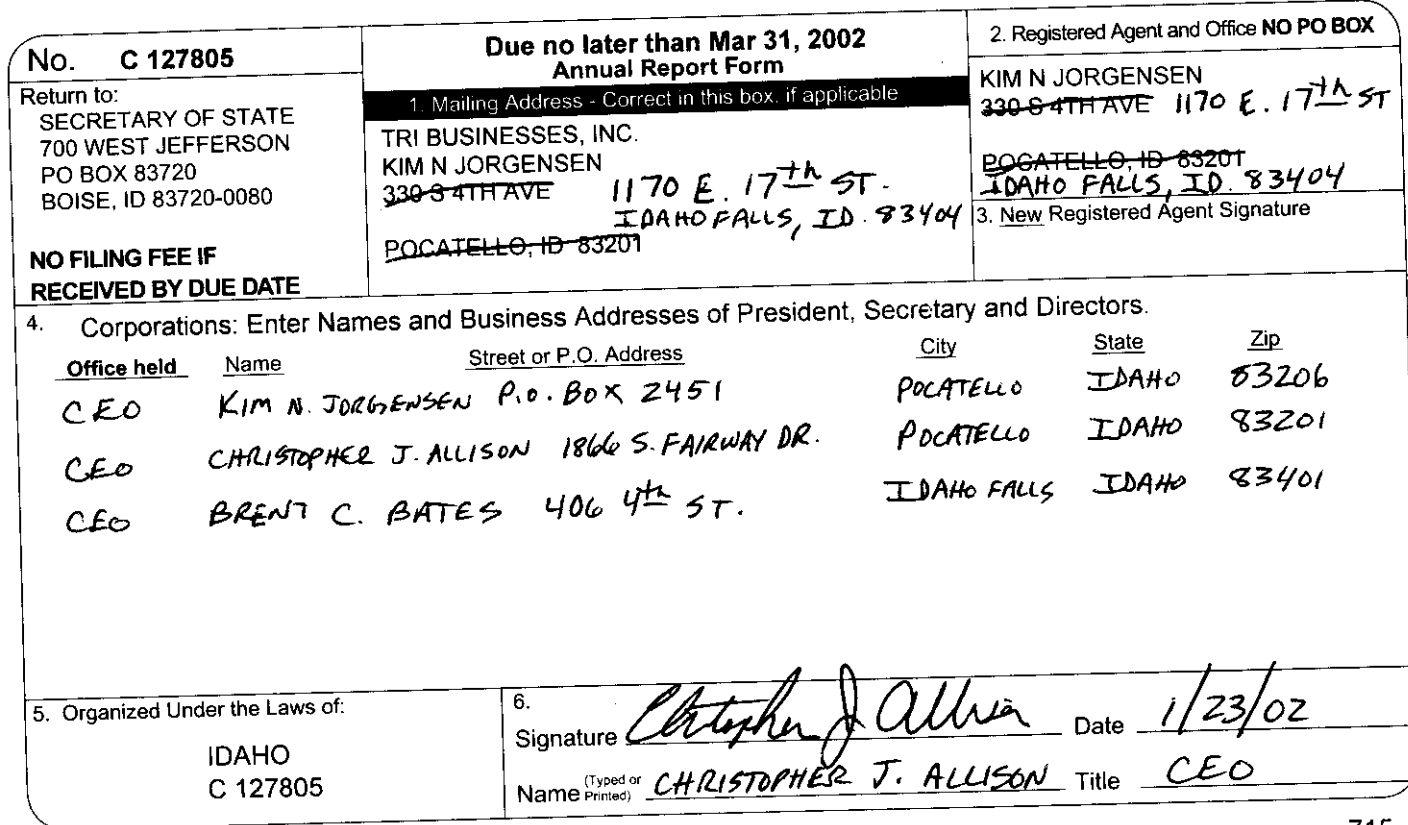 No. C 127805
Return to:
SECRETARY OF STATE
700 WEST JEFFERSON
PO BOX 83720
BOISE, ID 83720-0080
NO FILING FEE IF
RECEIVED BY DUE DATE
Due no later than Mar 31, 2002
Annual Report Form
1. Mailing Address - Correct in this box, if applicable
TRI BUSINESSES, INC.
KIM N JORGENSEN
330 S 4TH AVE 1170 E. 17th ST.
IDAHO FALLS, ID. 83404
POCATELLO, ID 83201
2. Registered Agent and Office NO PO BOX
KIM N JORGENSEN
330 S 4TH AVE 1170 E. 17th ST
POCATELLO, ID 83201
IDAHO FALLS, ID. 83404
3. New Registered Agent Signature
4. Corporations: Enter Names and Business Addresses of President, Secretary and Directors.
Office held Name Street or P.O. Address City State Zip
CEO KIM N. JORGENSEN P.O. BOX 2451 POCATELLO IDAHO 83206
CEO CHRISTOPHER J. ALLISON 1866 S. FAIRWAY DR. POCATELLO IDAHO 83201
CEO BRENT C. BATES 406 4th ST. IDAHO FALLS IDAHO 83401
5. Organized Under the Laws of:
IDAHO
C 127805
6.
Signature Christopher J Allison Date 1/23/02
Name (Typed or Printed) CHRISTOPHER J. ALLISON Title CEO